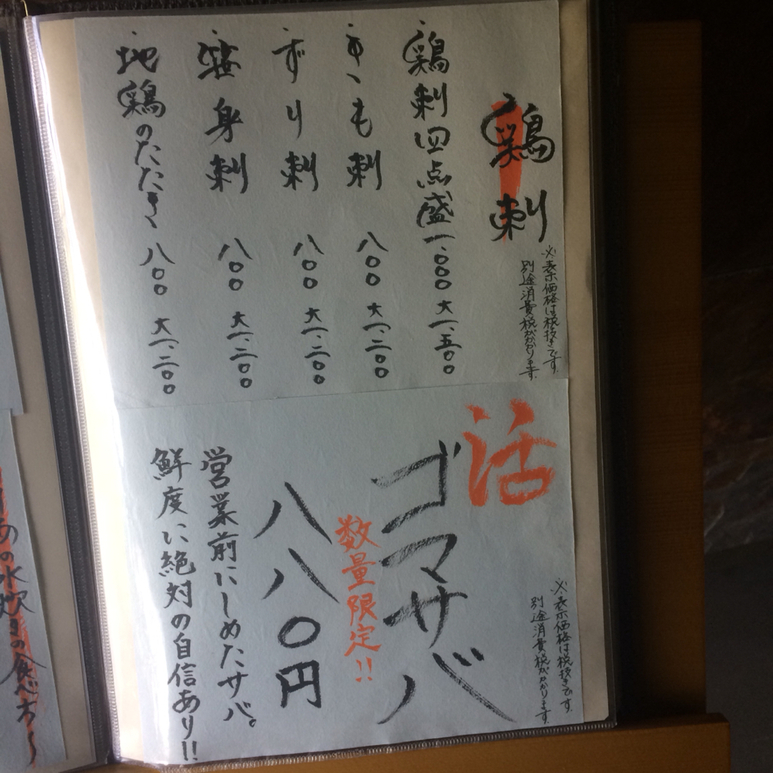 鶏刺
※表示価格は税抜きです。
別途消費税がかかります。
鶏刺四点盛 一、〇〇〇 大一、五〇〇
きも刺 八〇〇 大一、二〇〇
ずり刺 八〇〇 大一、二〇〇
身刺 八〇〇 大一、二〇〇
地鶏のたたき 八〇〇 大一、二〇〇
活
ゴマサバ
※表示価格は税抜きです。
別途消費税がかかります。
数量限定!!
八八〇円
営業前にしめたサバ。
鮮度に絶対の自信あり!!
の水炊きの食べ方～